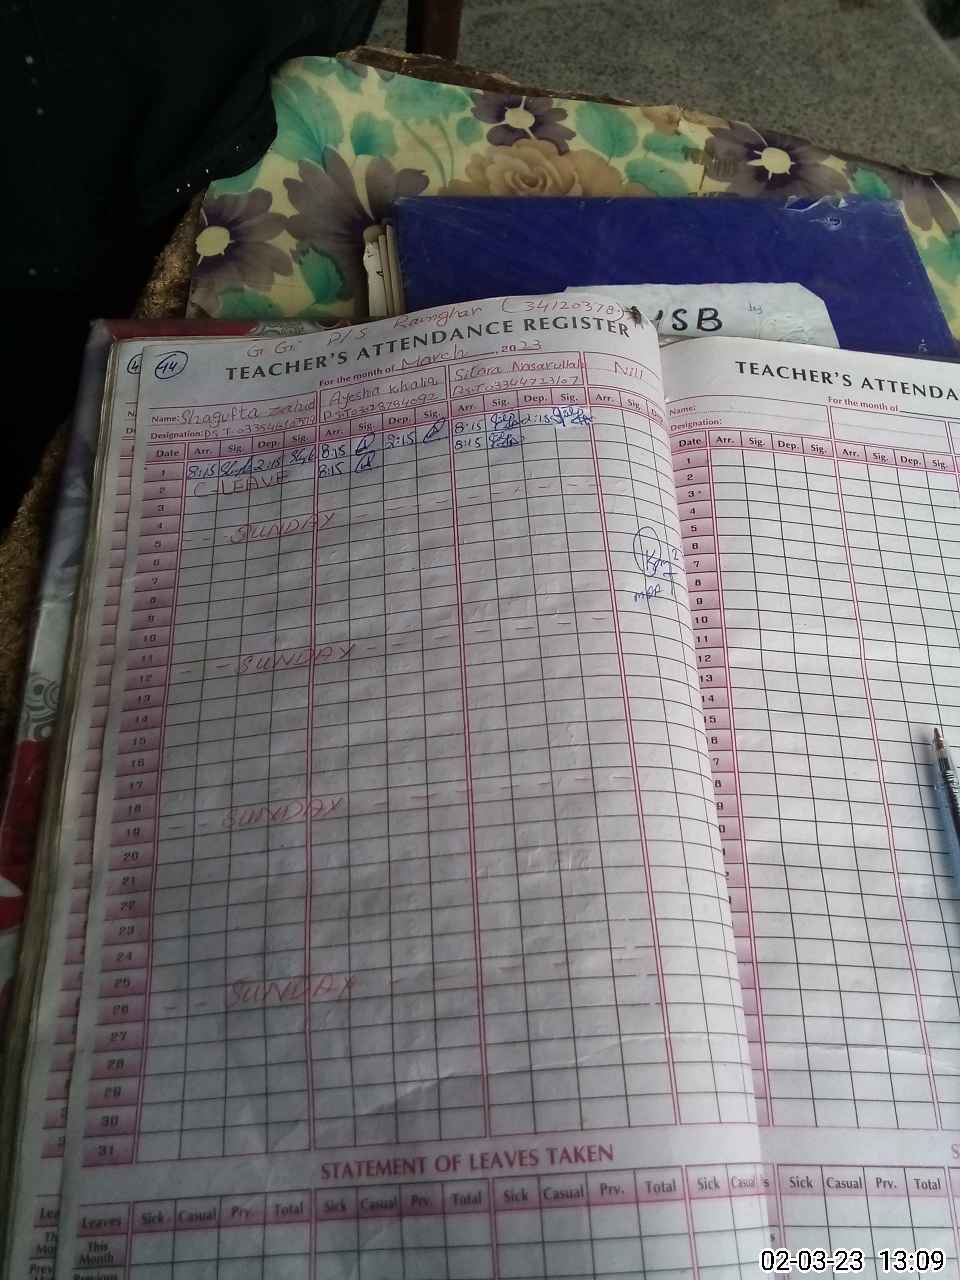 G G. P/S Rainghar (34120378)
USB
44
TEACHER'S ATTENDANCE REGISTER
For the month of March 2023
Name: Shagufta Zahid Ayesha Khaliq Sitara Nasarullah Nill
Designation: PST
Date Arr. Sig. Dep. Sig. Arr. Sig. Dep. Sig. Arr. Sig. Dep. Sig. Arr. Sig. Dep. Sig.
1 8:15 2:15 8:15 2:15 8:15 2:15
2 C-LEAVE 8:15 8:15
3
4
5 SUNDAY
6
7
8
9
10
11
12 SUNDAY
13
14
15
16
17
18
19 SUNDAY
20
21
22
23
24
25
26 SUNDAY
27
28
29
30
31
STATEMENT OF LEAVES TAKEN
Leaves Sick Casual Prv. Total Sick Casual Prv. Total Sick Casual Prv. Total Sick Casual
This Month
Previous
TEACHER'S ATTENDA
For the month of
Name:
Designation:
Date Arr. Sig. Dep. Sig. Arr. Sig. Dep. Sig.
1
2
3
4
5
6
7
8
9
10
11
12
13
14
15
6
7
8
9
0
Sick Casual Prv. Total
02-03-23 13:09